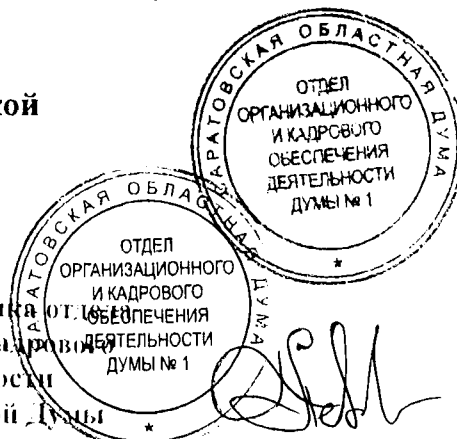 САРАТОВСКАЯ ОБЛАСТНАЯ ДУМА
ОТДЕЛ
ОРГАНИЗАЦИОННОГО
И КАДРОВОГО
ОБЕСПЕЧЕНИЯ
ДЕЯТЕЛЬНОСТИ
ДУМЫ № 1
*
кой
САРАТОВСКАЯ ОБЛАСТНАЯ ДУМА
ОТДЕЛ
ОРГАНИЗАЦИОННОГО
И КАДРОВОГО
ОБЕСПЕЧЕНИЯ
ДЕЯТЕЛЬНОСТИ
ДУМЫ № 1
*
ика отдела
адрового
ости
й Думы